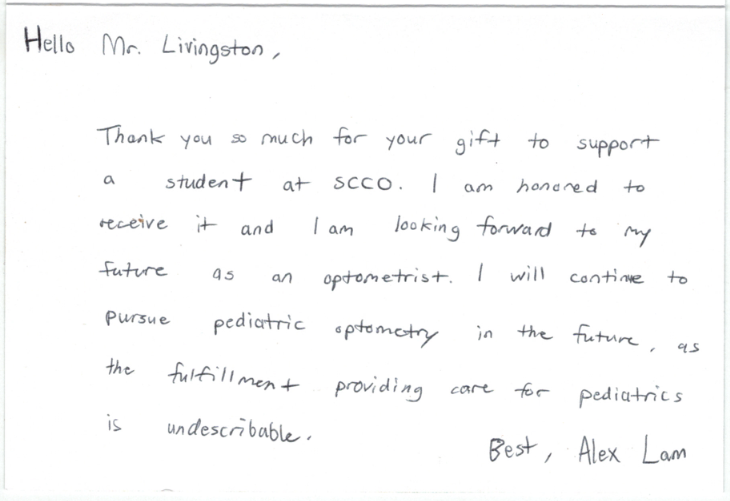 Hello Mr. Livingston,
Thank you so much for your gift to support
a student at SCCO. I am honored to
receive it and I am looking forward to my
future as an optometrist. I will continue to
pursue pediatric optometry in the future, as
the fulfillment providing care for pediatrics
is undescribable.
Best, Alex Lam